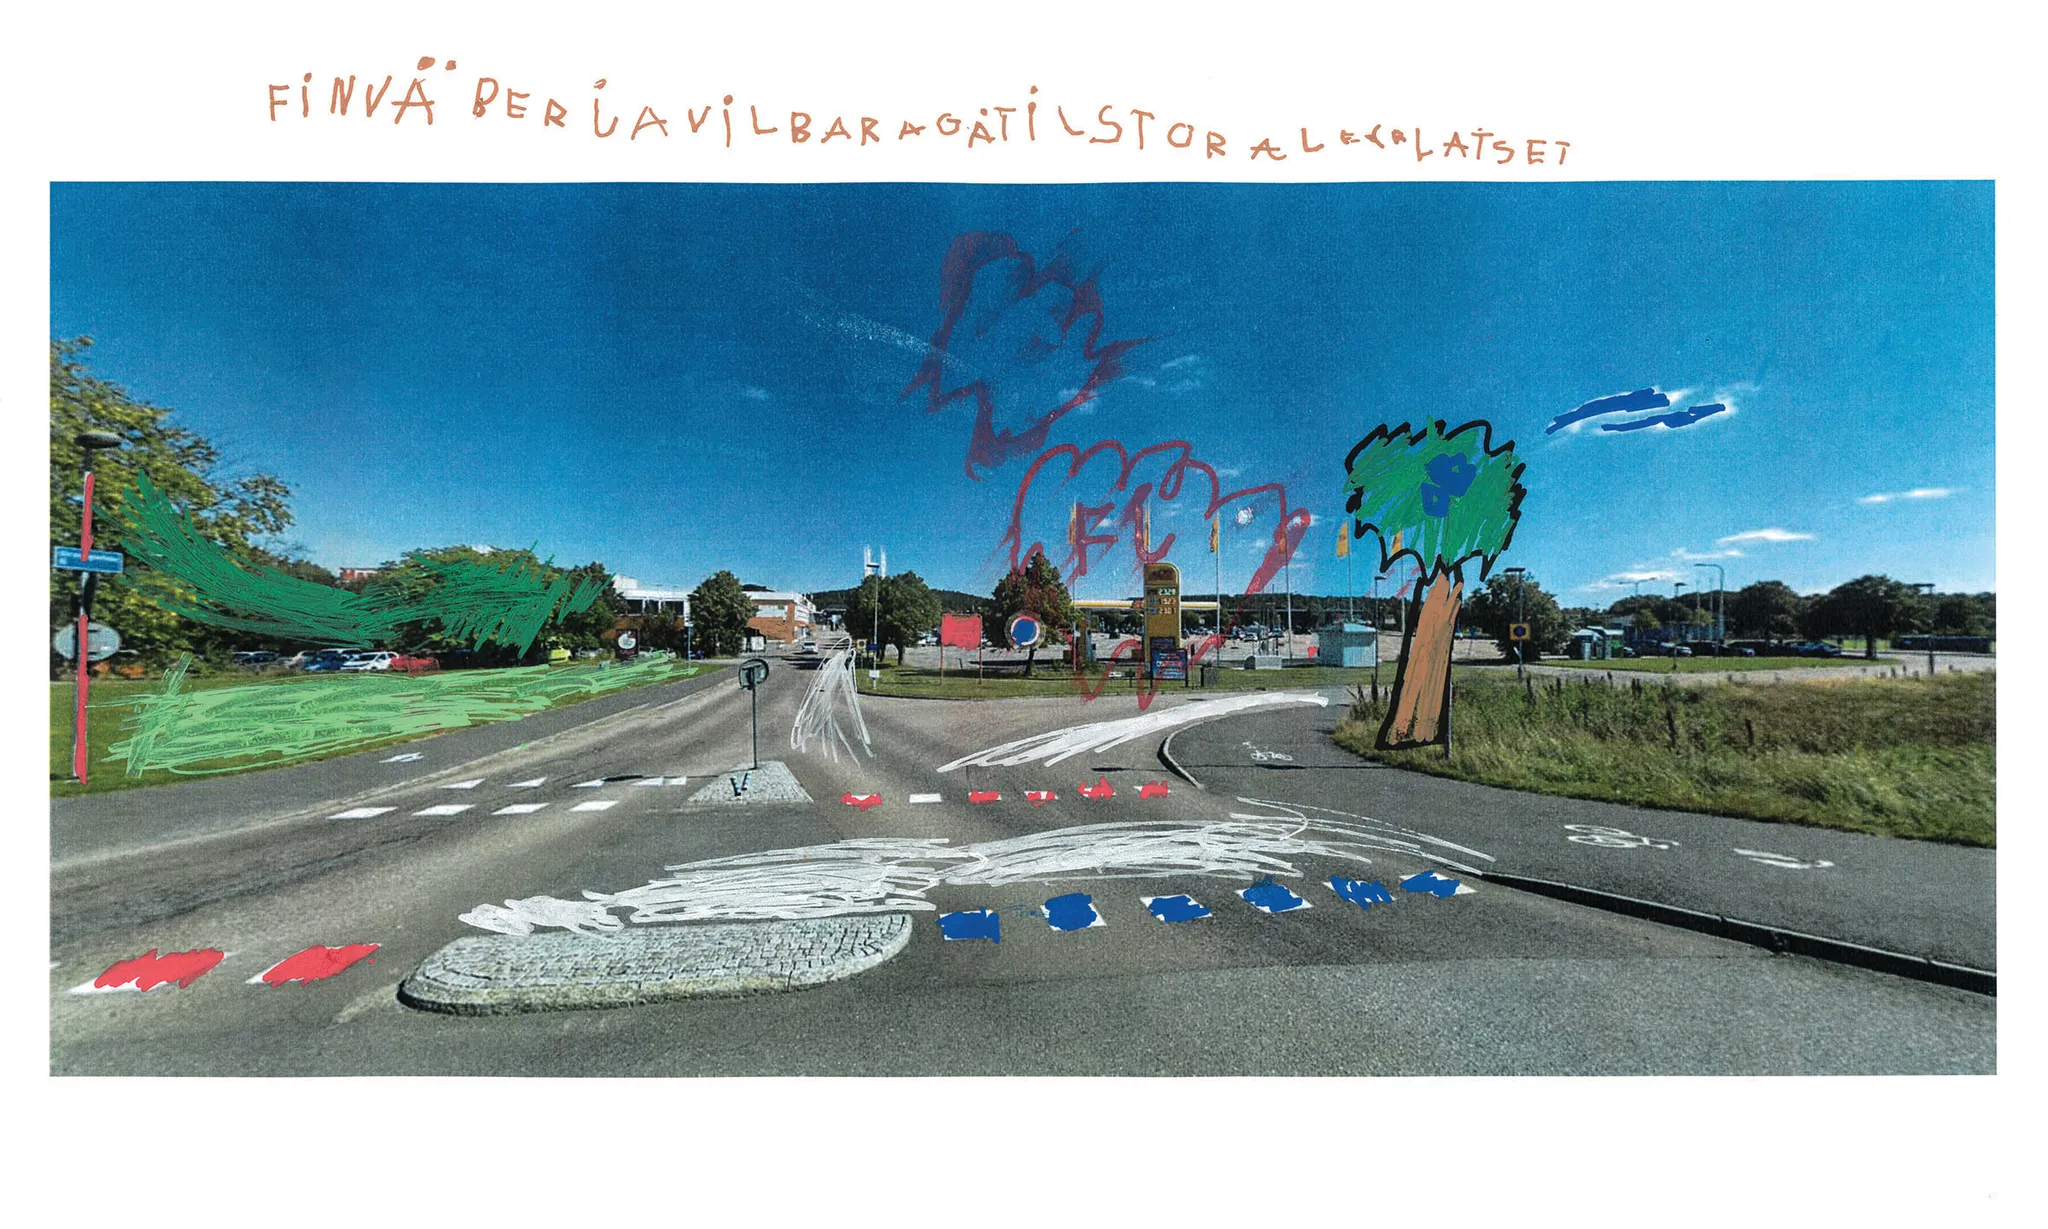 FINVÄBERJAVILBARAGÅTILSTORALEKPLATSET